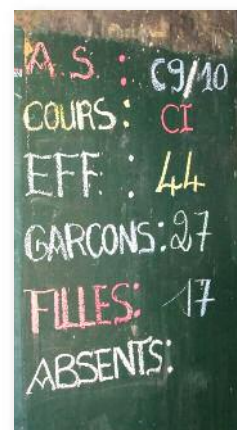 A.S. : C9/10
COURS : CI
EFF : 44
GARCONS : 27
FILLES : 17
ABSENTS :